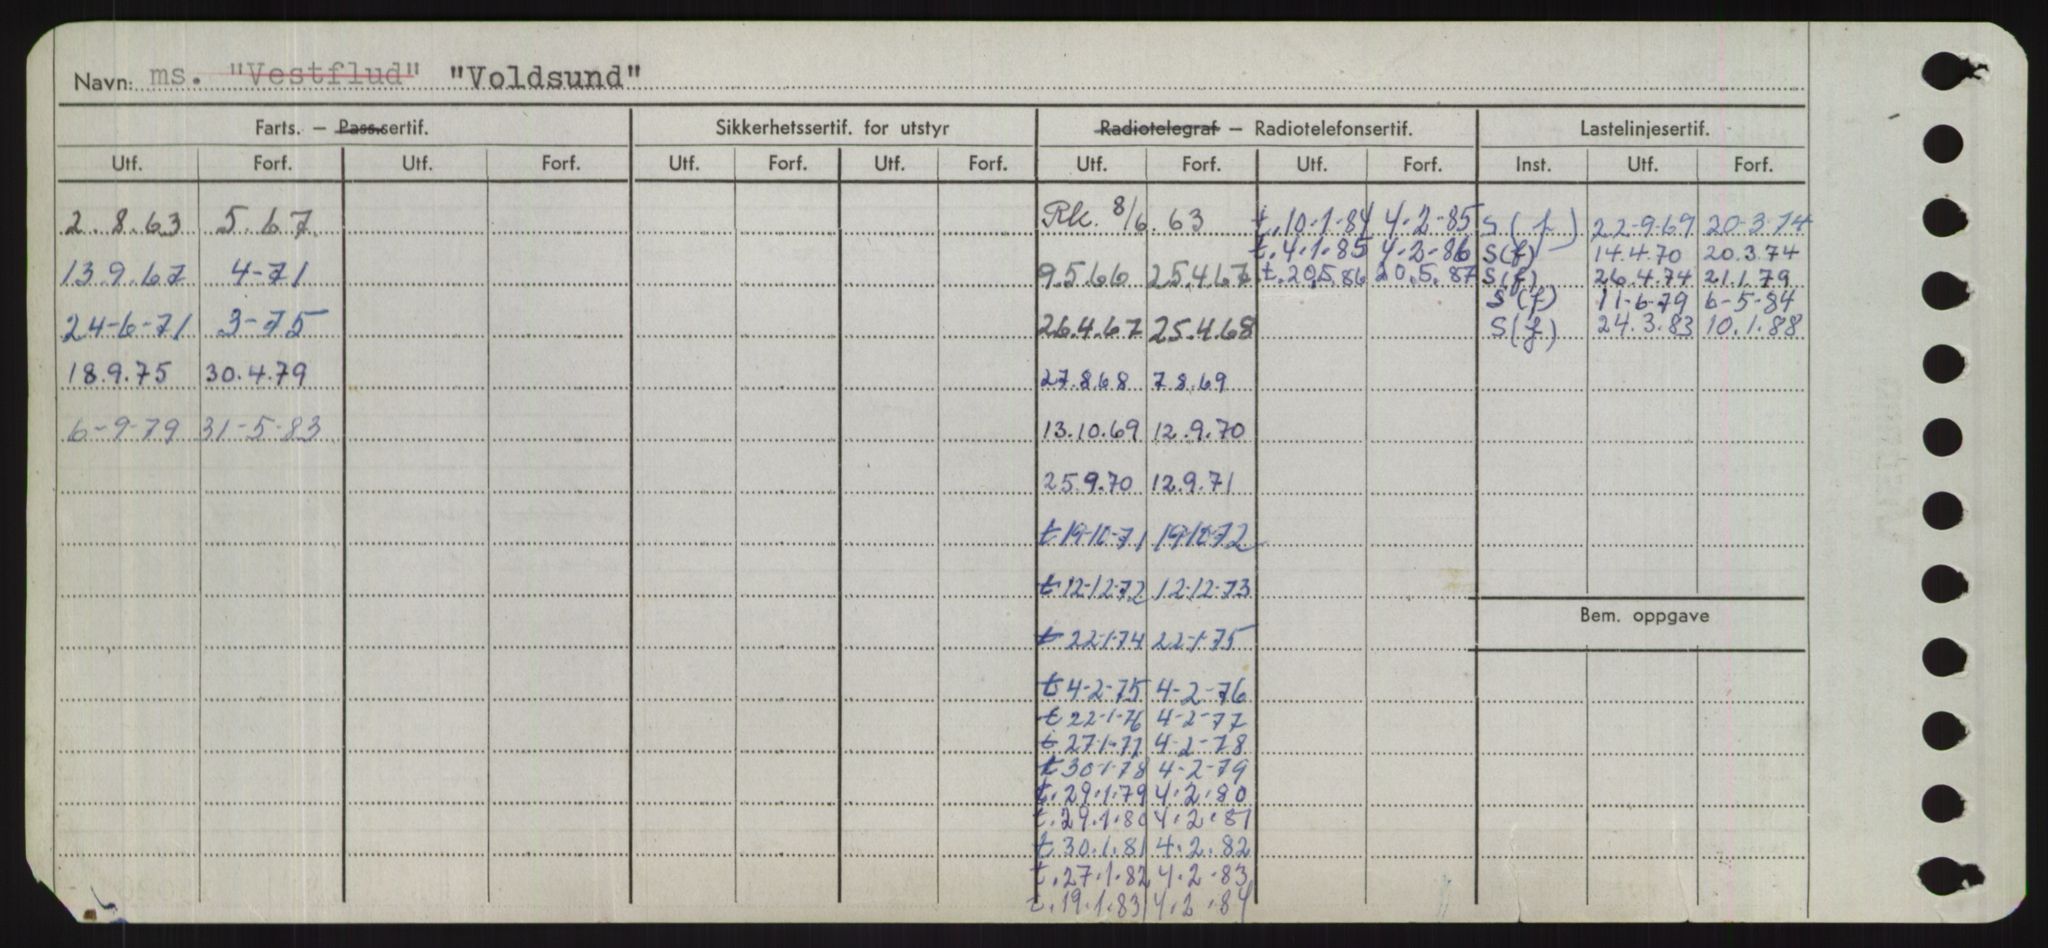 Navn: ms. "Vestflud" "Voldsund"
Farts. — Pass.sertif. Sikkerhetssertif. for utstyr Radiotelegraf — Radiotelefonsertif. Lastelinjesertif.
Utf. Forf. Utf. Forf. Utf. Forf. Utf. Forf. Utf. Forf. Utf. Forf. Inst. Utf. Forf.
2.8.63 5.67 Rk. 8/6.63 t.10.1.84 4.2.85 S(f) 22-9-69 20-3-74
t.4.1.85 4.2.86 S(f) 14.4.70 20.3.74
13.9.67 4-71 9.5.66 25.4.67 t.20.5.86 20.5.87 S(f) 26.4.74 21.1.79
S(f) 11-6-79 6-5-84
24-6-71 3-75 26.4.67 25.4.68 S(f) 24.3.83 10.1.88
18.9.75 30.4.79 27.8.68 7.8.69
6-9-79 31-5-83 13.10.69 12.9.70
25.9.70 12.9.71
t 19-10-71 19-10-72
t 12-12-72 12-12-73
Bem. oppgave
t 22-1-74 22-1-75
t 4-2-75 4-2-76
t 22-1-76 4-2-77
t 27-1-77 4-2-78
t 30-1-78 4-2-79
t.29.1.79 4.2.80
t.29.1.80 4.2.81
t.30.1.81 4.2.82
t.27.1.82 4.2.83
t.19.1.83 4.2.84